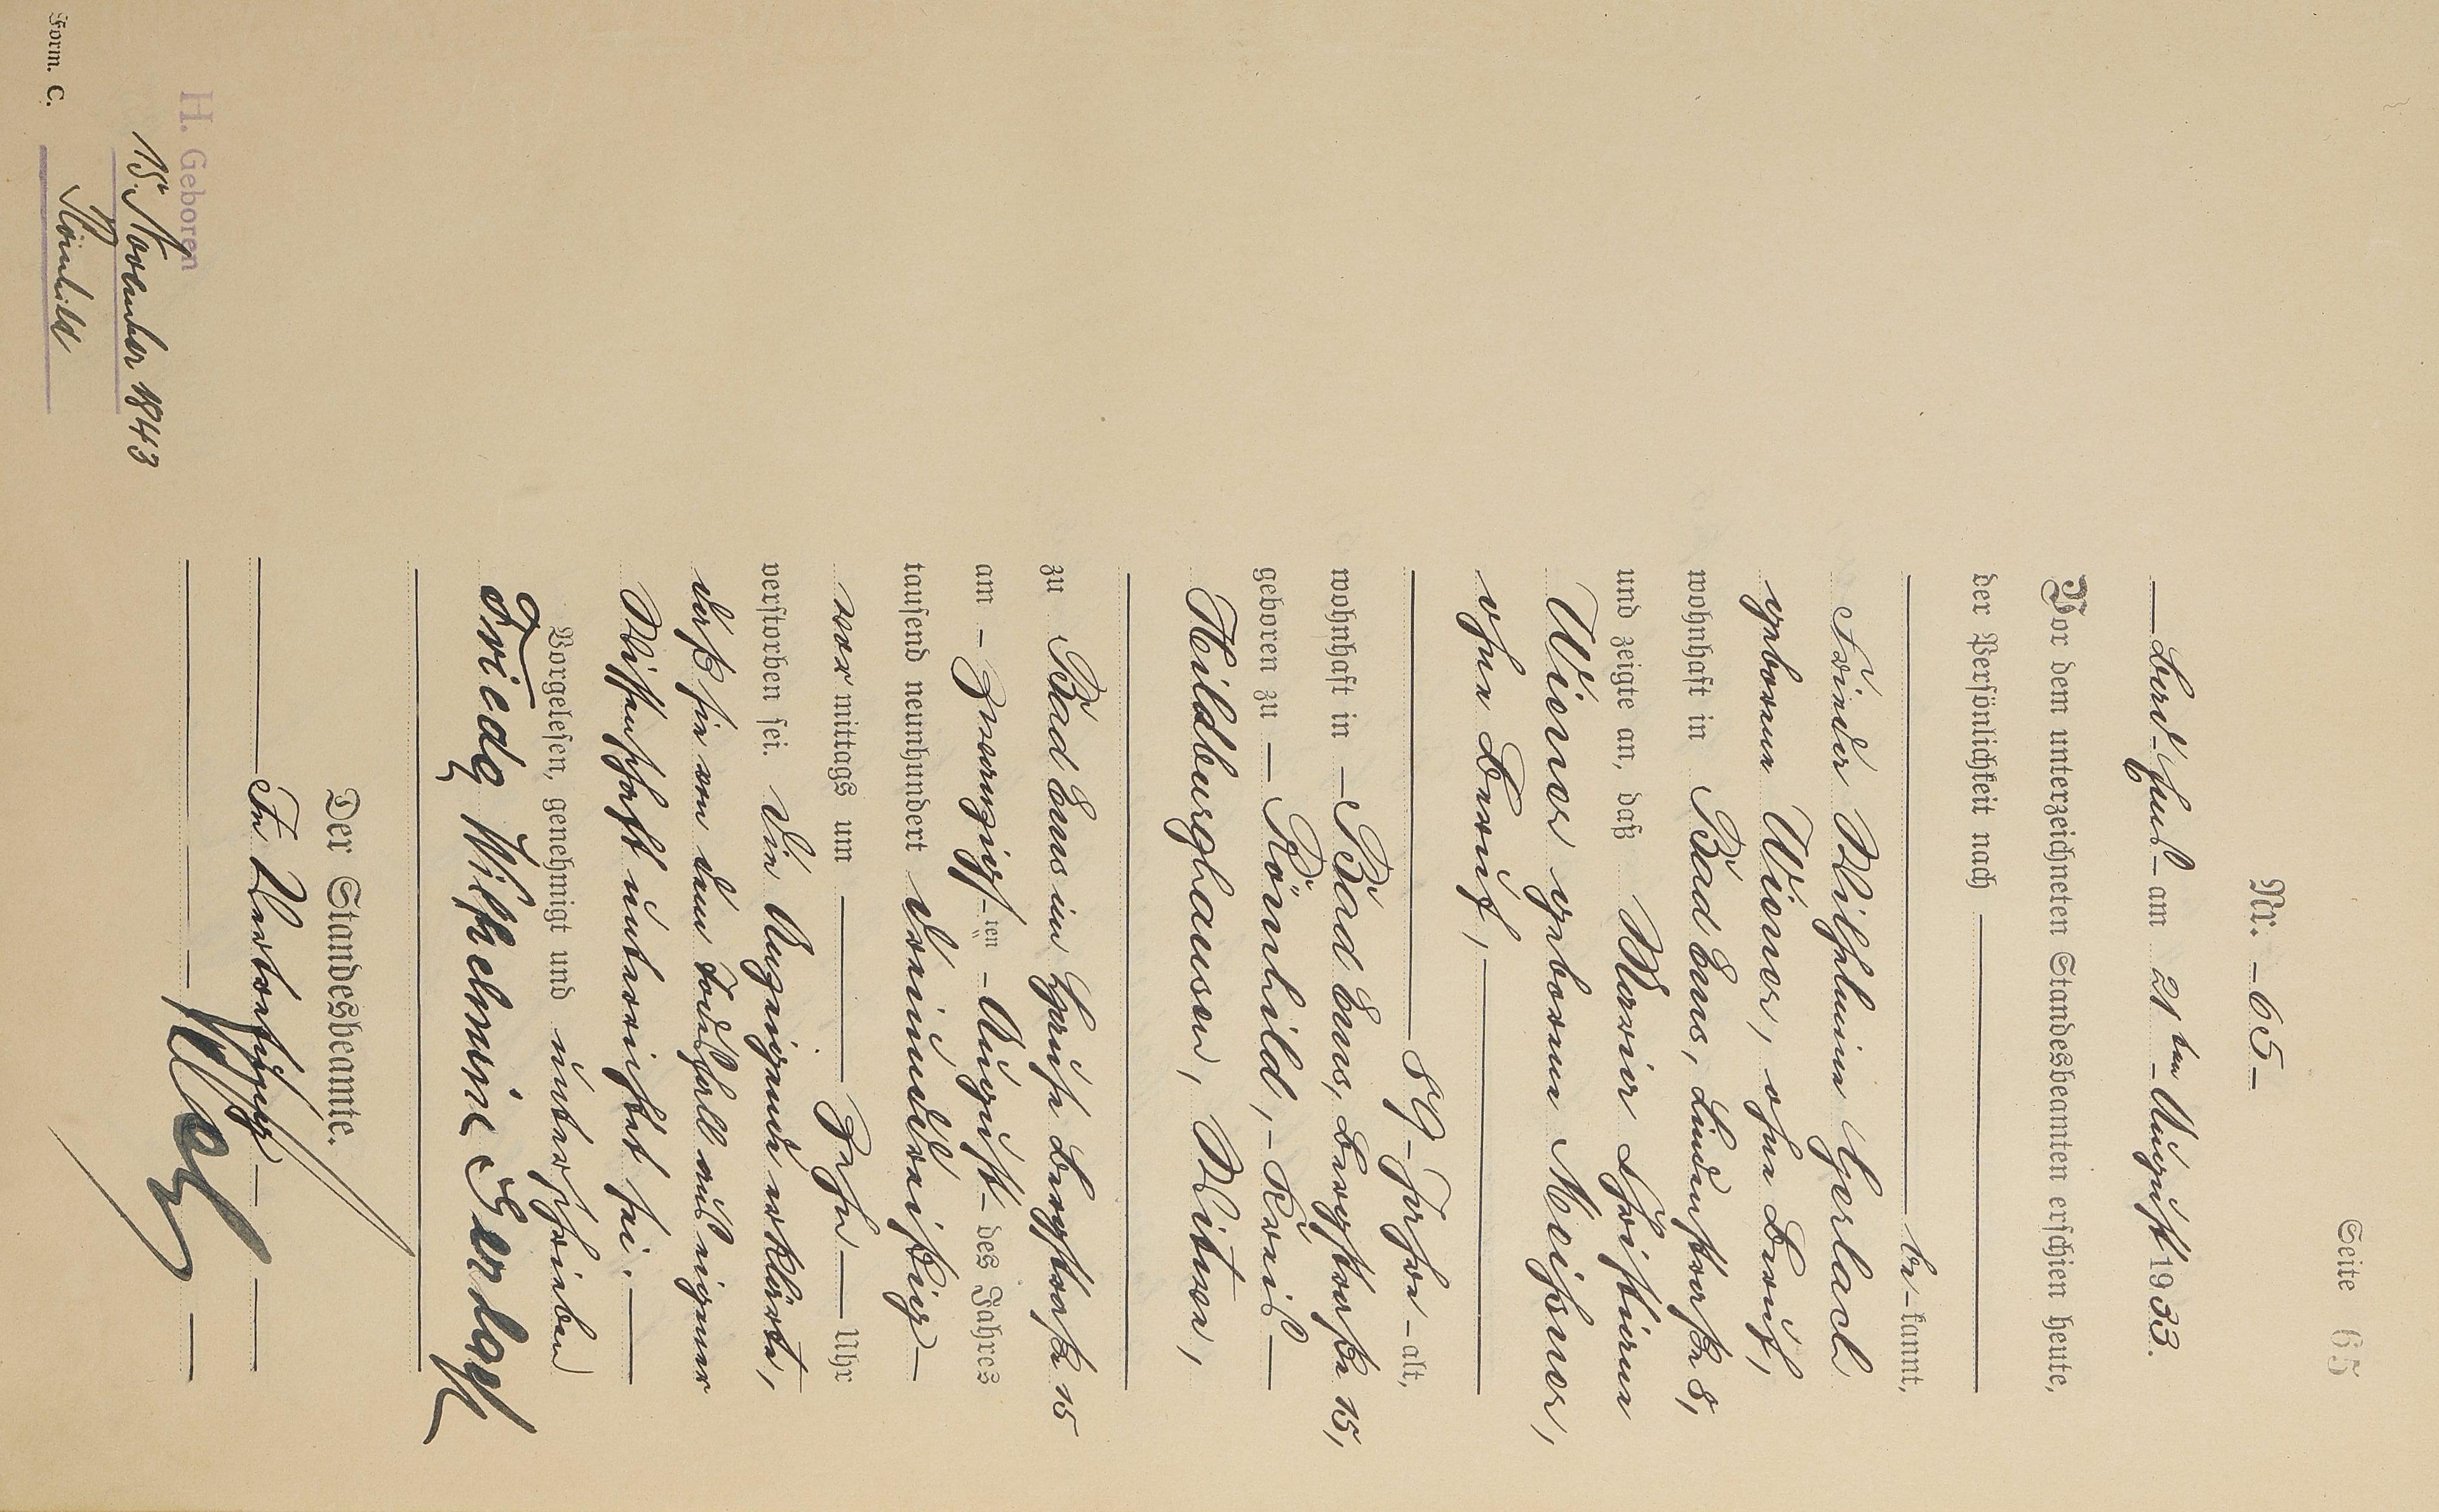 Seite 65
Nr. – 65 –
– Bad-Ems – am 21ten – August 1933.
Vor dem unterzeichneten Standesbeamten erschien heute,
der Persönlichkeit nach
be – kannt,
Frieda Wilhelmine Gerlach
geborene Wiener, ohne Beruf,
wohnhaft in Bad Ems, Lindenstraße 8,
und zeigte an, daß Maria Christiana
Wiener geborene Meißner,
ohne Beruf,
89 – Jahre – alt,
wohnhaft in – Bad Ems, Bergstraße 15,
geboren zu – Römhild, – Kreis –
Hildburghausen, Witwe,
zu Bad Ems im Hause Bergstraße 15
am – Zwanzigsten – August – des Jahres
tausend neunhundert dreiunddreißig –
vor mittags um Zehn Uhr
verstorben sei. Die Anzeigende erklärte,
daß sie von dem Todesfall aus eigener
Wissenschaft unterrichtet sei.
Vorgelesen, genehmigt und unterschrieben
Frieda Wilhelmine Gerlach
Der Standesbeamte.
In Vertretung
H. Geboren
15. November 1843
Römhild
Form. C.